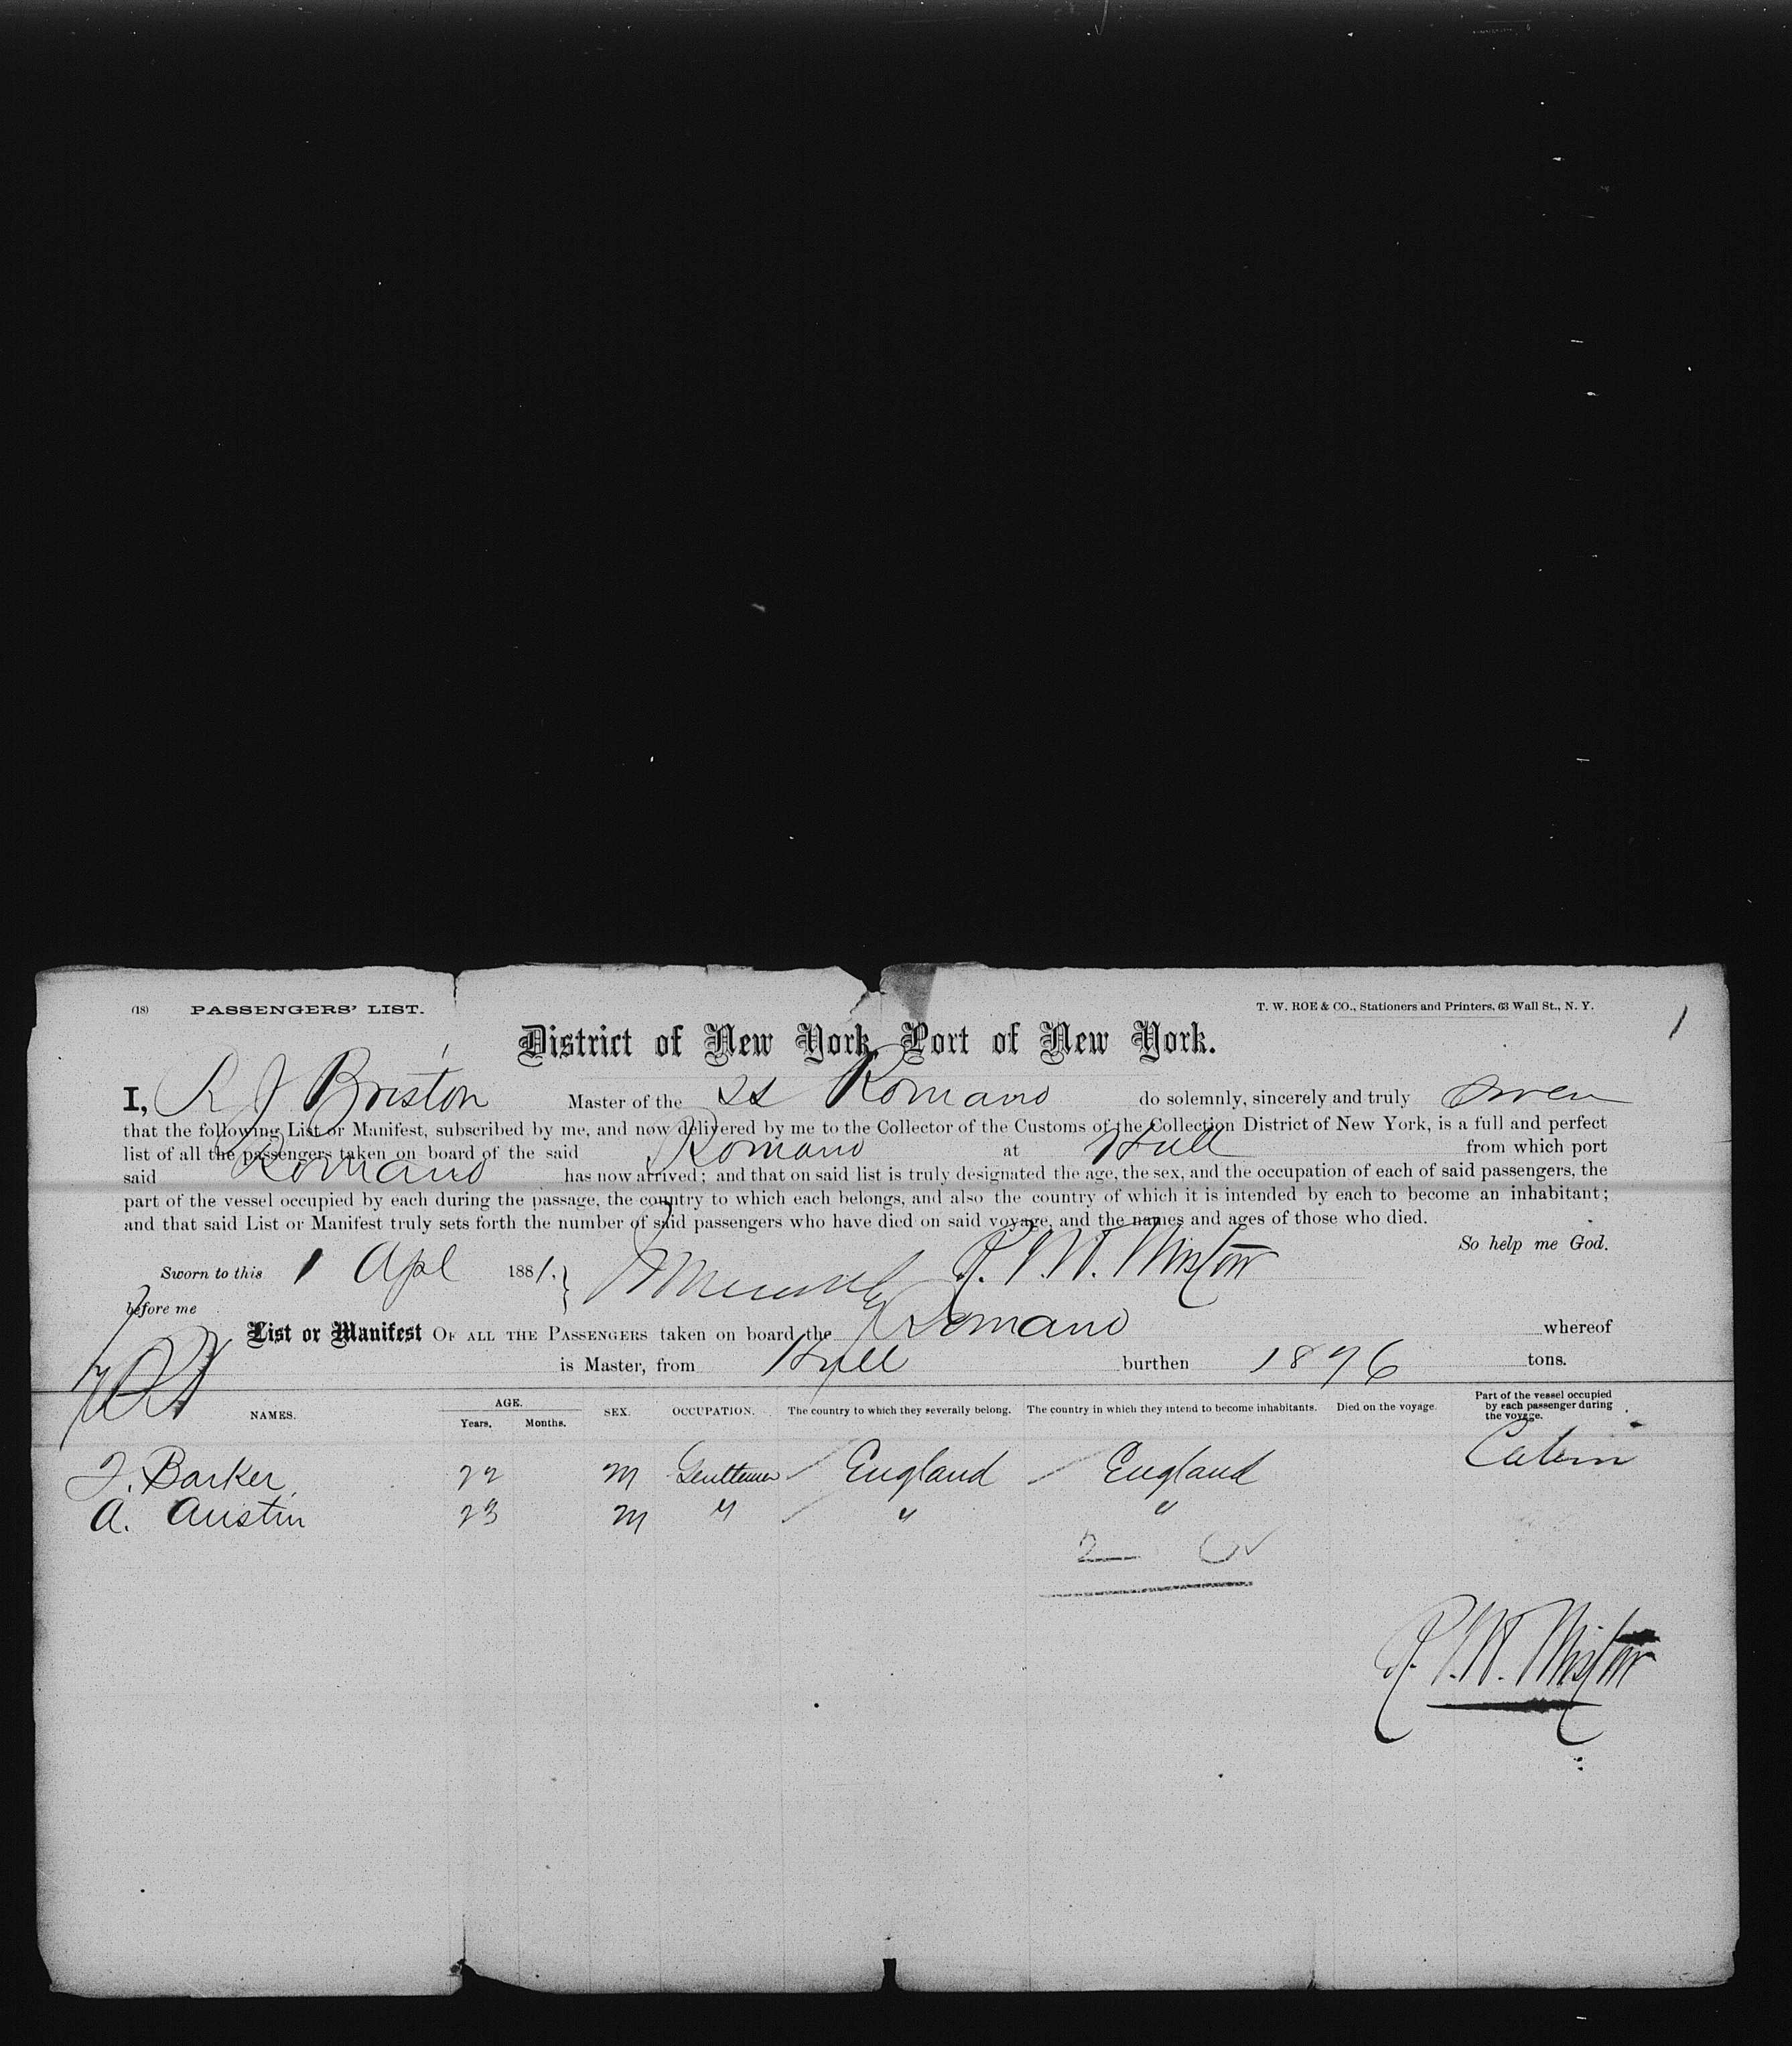 (18) PASSENGERS' LIST. T. W. ROE & CO., Stationers and Printers, 63 Wall St., N. Y.
1
District of New York, Port of New York.
I, R J Briston Master of the SS Romano do solemnly, sincerely and truly swear
that the following List or Manifest, subscribed by me, and now delivered by me to the Collector of the Customs of the Collection District of New York, is a full and perfect
list of all the passengers taken on board of the said Romano at Hull from which port
said Romano has now arrived; and that on said list is truly designated the age, the sex, and the occupation of each of said passengers, the
part of the vessel occupied by each during the passage, the country to which each belongs, and also the country of which it is intended by each to become an inhabitant;
and that said List or Manifest truly sets forth the number of said passengers who have died on said voyage, and the names and ages of those who died.
So help me God.
Sworn to this 1 Apl 1881.
before me
List or Manifest OF ALL THE PASSENGERS taken on board the Romano whereof
is Master, from Hull burthen 1876 tons.
NAMES. AGE. Years. Months. SEX. OCCUPATION. The country to which they severally belong. The country in which they intend to become inhabitants. Died on the voyage. Part of the vessel occupied by each passenger during the voyage.
J. Barker 22 M Gentlemen England England Cabin
A. Austin 23 M " " "
2